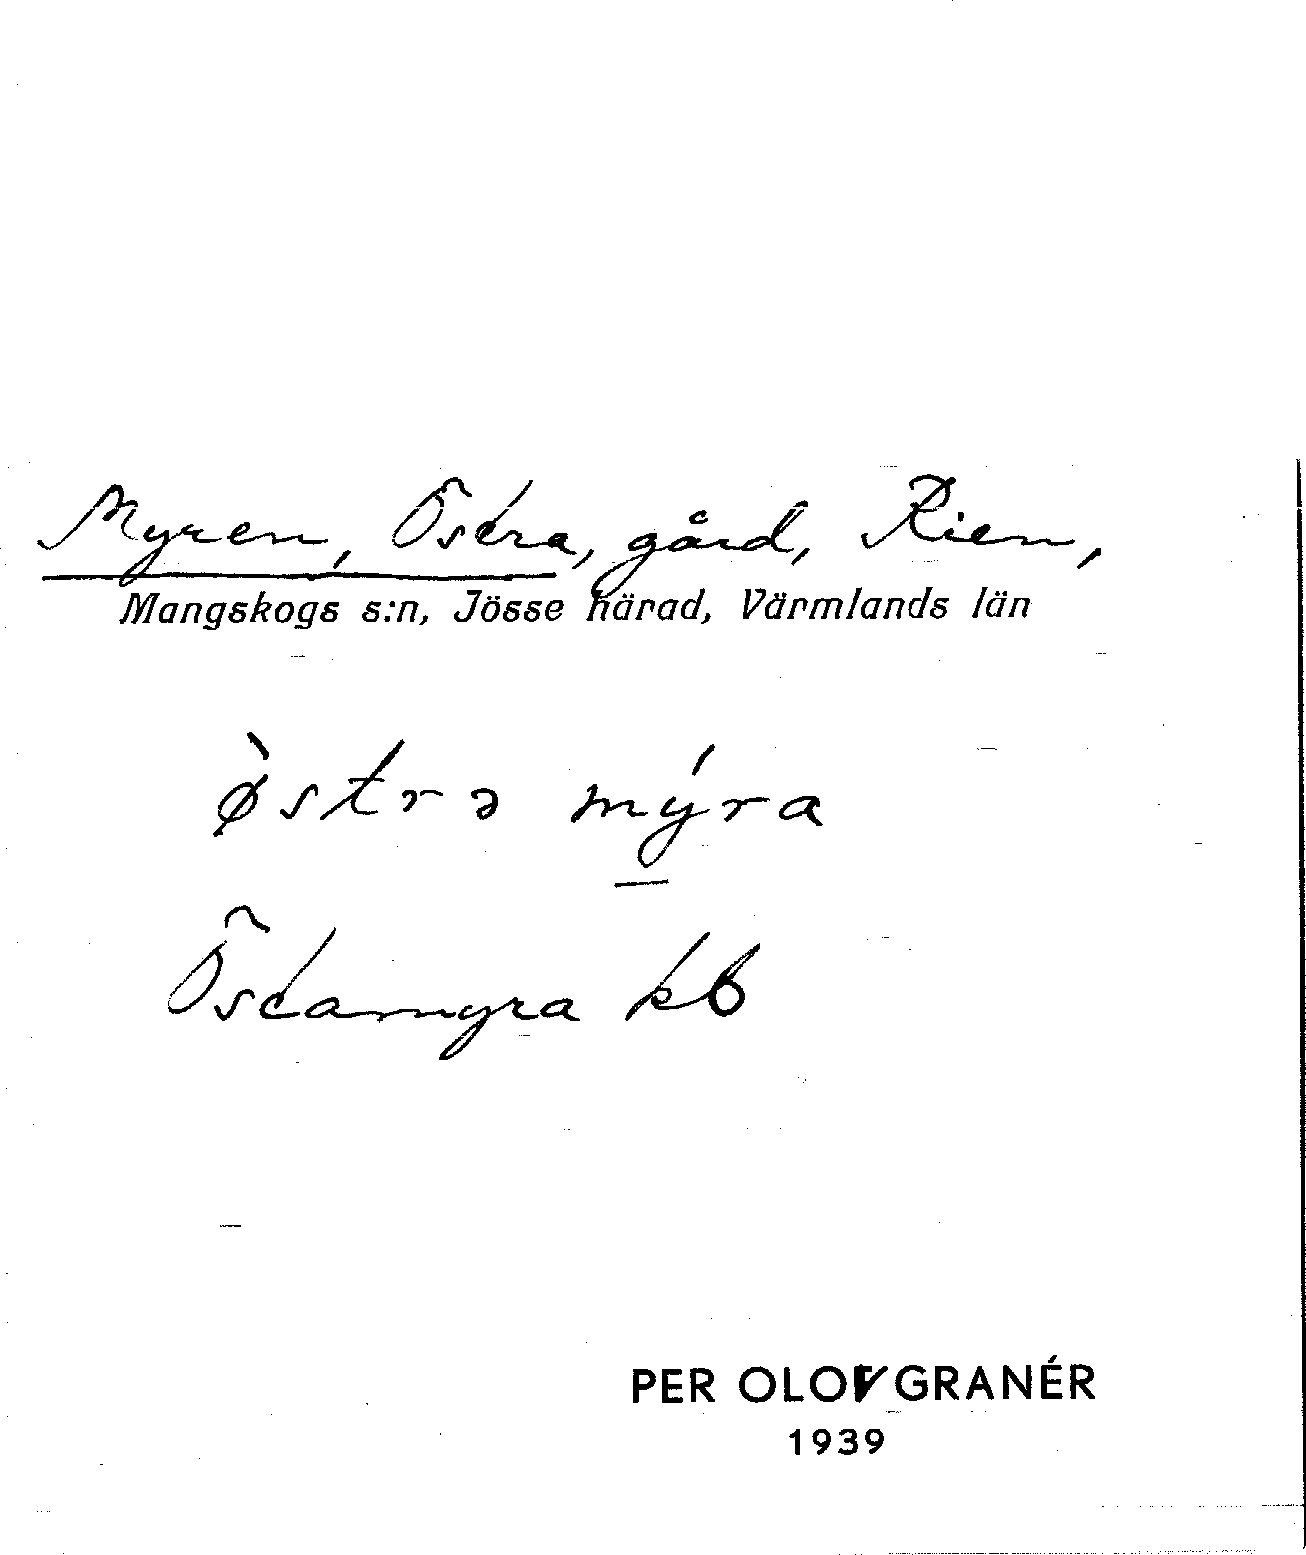 Myren, Östra, gård, Rien,
Mangskogs s:n, Jösse härad, Värmlands län
ø̀strə mýra
Östamyra kb
PER OLOV GRANÉR
1939